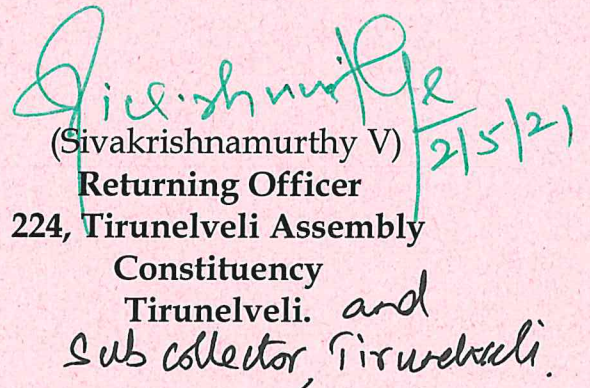 2/5/21
(Sivakrishnamurthy V)
Returning Officer
224, Tirunelveli Assembly
Constituency
Tirunelveli. and
Sub collector, Tirunelveli.